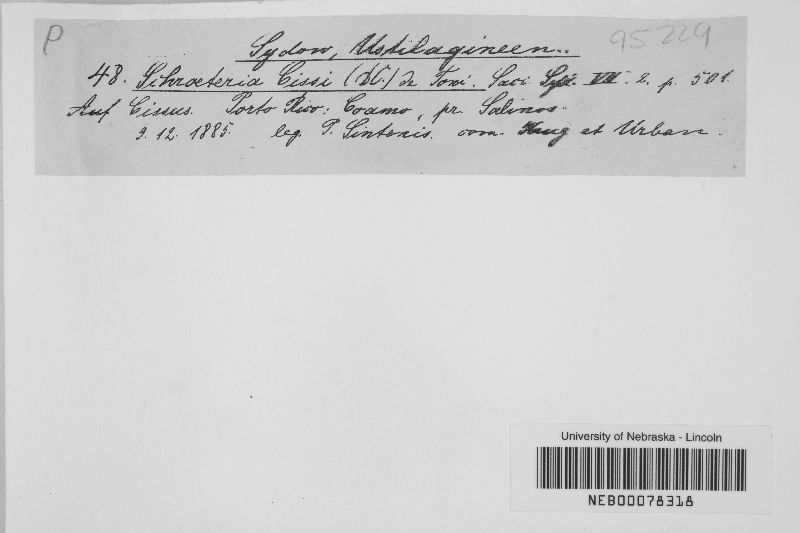 P
Sydow, Ustilagineen.
95229
48. Schroeteria Cissi (DC.) de Toni. Sacc. Syll. VII. 2. p. 501.
Auf Cissus. Porto Rico: Coamo, pr. Salinos.
9. 12. 1885. leg. P. Sintenis. com. Krug et Urban.
University of Nebraska - Lincoln
NEB00078318